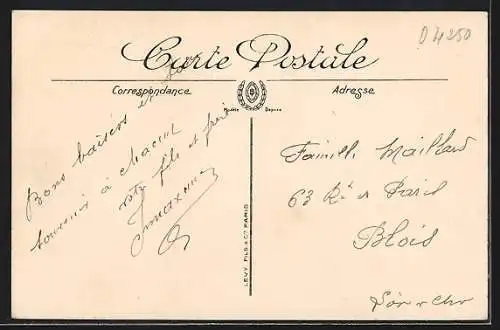 04350
Carte Postale
Correspondance
Adresse
Modèle Déposé
Bons baisers et
souvenir à chacun
votre fils et frère
Famille Maillard
63 R. de Paris
Blois
Loir et Cher
LEVY FILS & Cº PARIS